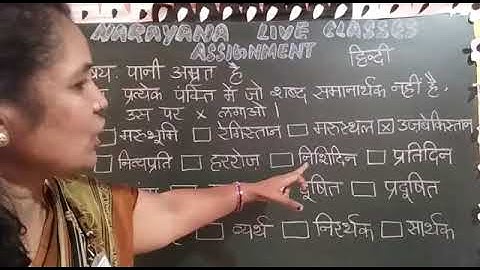 NARAYANA LIVE CLASSES
ASSIGNMENT हिन्दी
पानी अमृत है
प्रत्येक पंक्ति में जो शब्द समानार्थक नहीं है,
उस पर x लगाओ।
मरुभूमि □ रेगिस्तान □ मरुस्थल ☒ उजबेकिस्तान
नित्यप्रति □ हररोज □ निशिदिन □ प्रतिदिन
□ □ प्रदूषित
□ व्यर्थ □ निरर्थक □ सार्थक